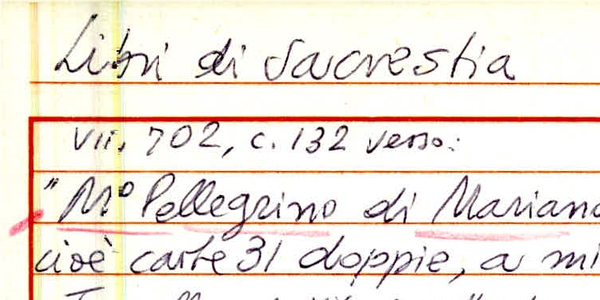 Libri di Sacrestia
VII, 702, c. 132 verso:
"Mº Pellegrino di Mariano
cioè carte 31 doppie, a mi